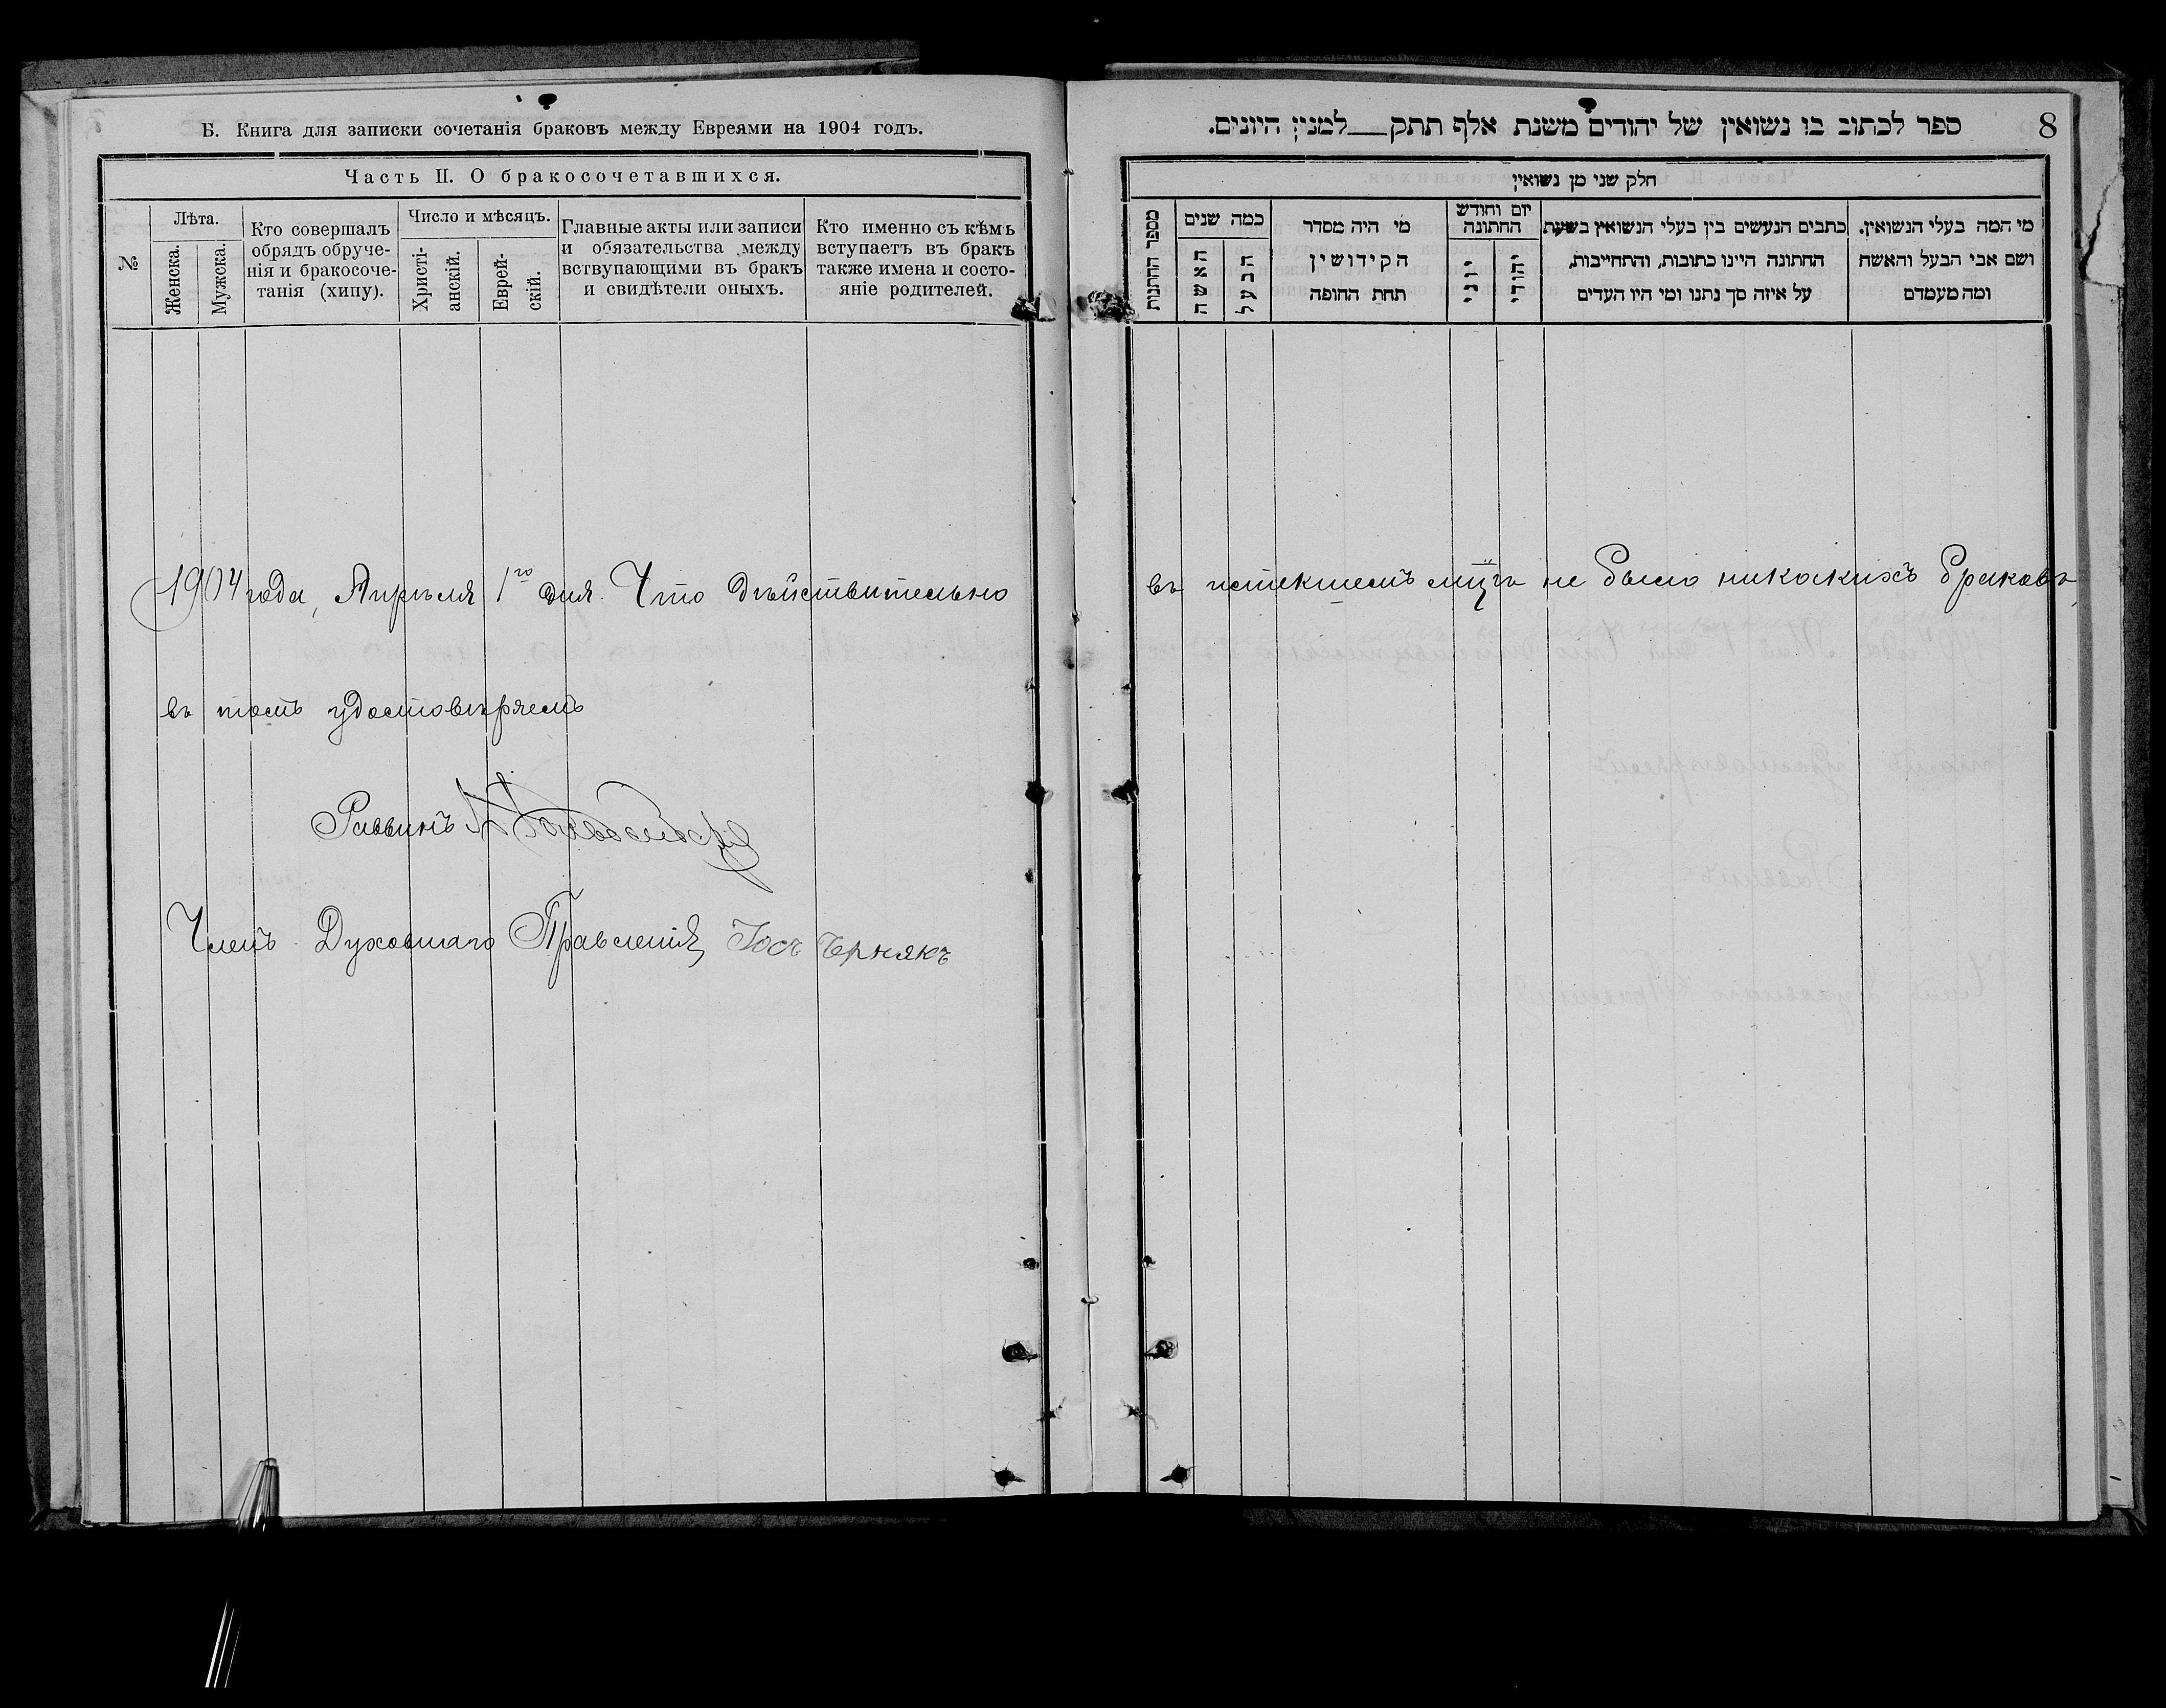 Б. Книга для записки сочетанія браковъ между Евреями на 1904 годъ.
Часть II. О бракосочетавшихся.
№
Лѣта.
Женска.
Мужска.
Кто совершалъ
обрядъ обруче-
нія и бракосоче-
танія (хипу).
Число и мѣсяцъ.
Христі-
анскій.
Еврей-
скій.
Главные акты или записи
и обязательства между
вствупающими въ бракъ
и свидѣтели оныхъ.
Кто именно съ кѣмъ
вступаетъ въ бракъ
также имена и состо-
яніе родителей.
1904 года, Апрѣля 1го дня. Что дѣйствительно
въ томъ удостовѣряемъ
Раввинъ
Членъ Духовнаго Правленія Іос Чернякъ
8
ספר לכתוב בו נשואין של יהודים משנת אלף תתק למנין היונים.
חלק שני מן נשואין
מספר החתונות
כמה שנים
האשה
הבעל
מי היה מסדר
הקידושין
תחת החופה
יום וחודש
החתונה
יוני
יהודי
כתבים הנעשים בין בעלי הנשואין בשעת
החתונה היינו כתובות, והתחייבות,
על איזה סך נתנו ומי היו העדים
מי המה בעלי הנשואין.
ושם אבי הבעל והאשה
ומה מעמדם
въ истекшемъ мцѣ не было никакихъ браковъ